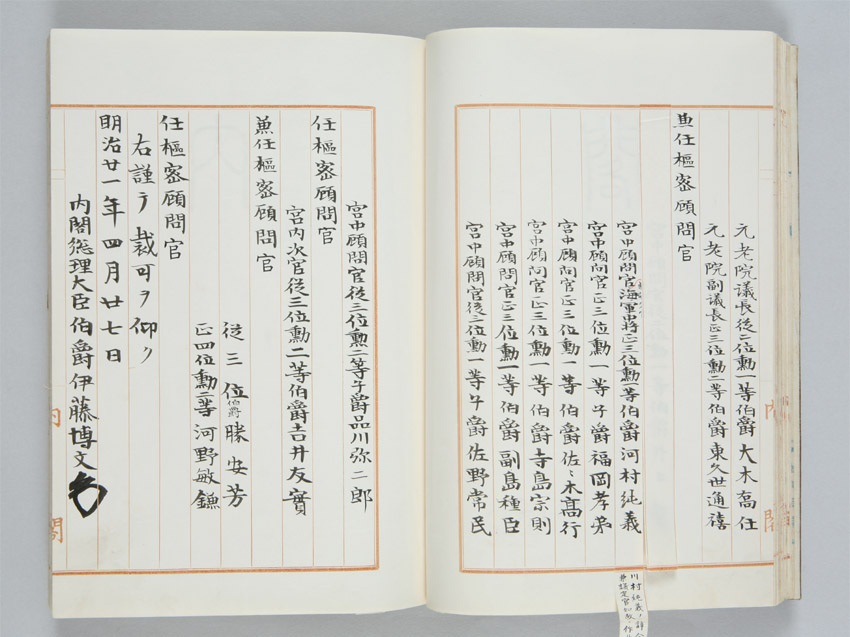 元老院議長従二位勲一等伯爵大木喬任
元老院副議長正三位勲二等伯爵東久世通禧
兼任樞密顧問官
宮中顧問官海軍中将正三位勲一等伯爵河村純義
宮中顧問官正三位勲一等子爵福岡孝弟
宮中顧问官正三位勲一等伯爵佐々木高行
宮中顧问官正三位勲一等伯爵寺島宗則
宮中顧問官正三位勲一等伯爵副島種臣
宮中顧問官従三位勲一等子爵佐野常民
宮中顧問官従三位勲二等子爵品川弥二郎
任樞密顧問官
宮内次官従三位勲二等伯爵吉井友實
兼任樞密顧問官
従三位伯爵勝安芳
正四位勲二等河野敏鎌
任樞密顧問官
右謹テ裁可ヲ仰ク
明治廿一年四月廿七日
内閣総理大臣伯爵伊藤博文
内閣
川村純義ノ
兼議定官